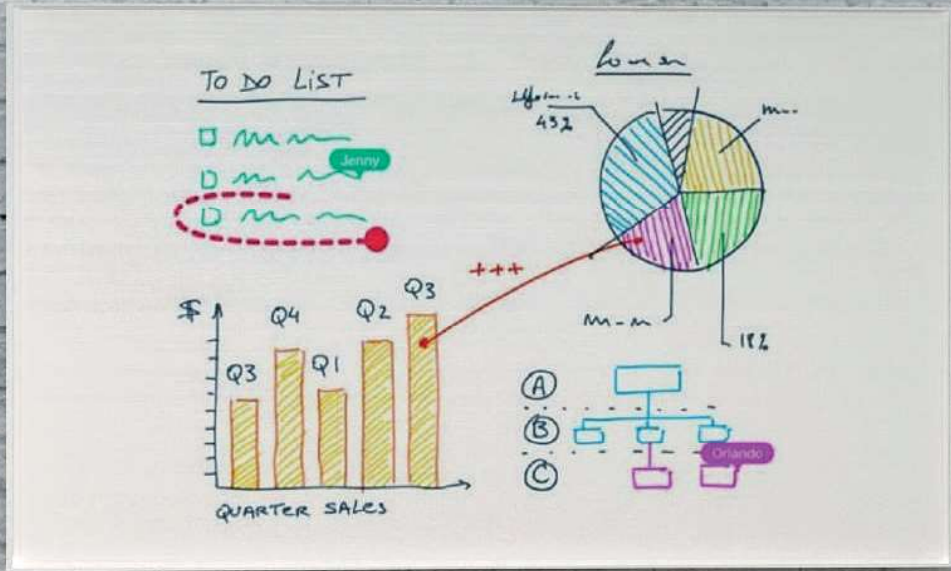 TO DO LIST
Jenny
43%
18%
+++
$
Q3
Q4
Q1
Q2
Q3
QUARTER SALES
A
B
C
Orlando